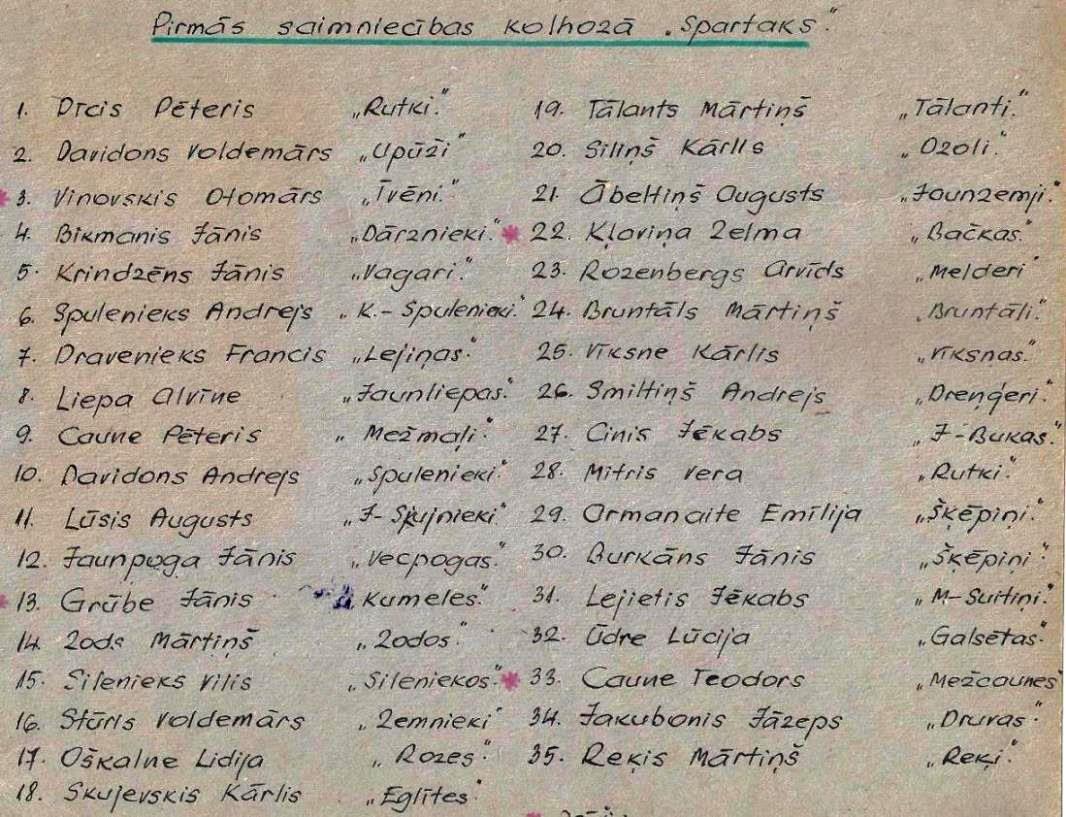 Pirmās saimniecības kolhozā „Spartaks“.
1. Dīcis Pēteris „Rutki.“
2. Davidons Voldemārs „Upūži“
3. Vinovskis Otomārs „Īvēni.“
4. Bikmanis Jānis „Dārznieki.“
5. Krindzēns Jānis „Vagari.“
6. Spulenieks Andrejs „K.-Spulenieki.“
7. Dravenieks Francis „Lejiņas.“
8. Liepa Alvīne „Jaunliepas.“
9. Caune Pēteris „Mežmaļi.“
10. Davidons Andrejs „Spulenieki.“
11. Lūsis Augusts „J-Skujnieki.“
12. Jaunpoga Jānis „Vecpogas.“
13. Grūbe Jānis Kumeles.“
14. Zods Mārtiņš „Zodos.“
15. Silenieks Vilis „Sileniekos.“
16. Stūris Voldemārs „Zemnieki“
17. Oškalne Lidija „Rozes.“
18. Skujevskis Kārlis „Eglītes.“
19. Tālants Mārtiņš „Tālanti.“
20. Siliņš Kārlis „Ozoli.“
21. Ābeltiņš Augusts „Jaunzemji.“
22. Kļaviņa Zelma „Bačkas.“
23. Rozenbergs Arvīds „Melderi“
24. Bruntāls Mārtiņš „Bruntāli.“
25. Vīksne Kārlis „Vīksnas.“
26. Smiltiņš Andrejs „Dreņģeri.“
27. Cinis Jēkabs „J-Bukas.“
28. Mitris Vera „Rutki.“
29. Ormanaite Emīlija „Šķēpiņi.“
30. Burkāns Jānis „Šķēpiņi.“
31. Lejietis Jēkabs „M-Suitiņi.“
32. Ūdre Lūcija „Galsētas.“
33. Caune Teodors „Mežcaunes“
34. Jakubonis Jāzeps „Druvas.“
35. Reķis Mārtiņš „Reķi.“